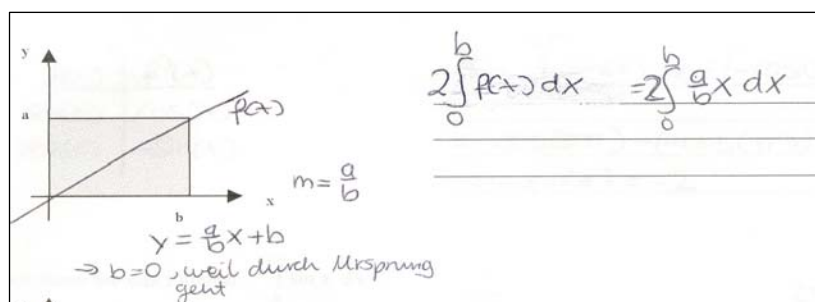 y
a
f(x)
b
x
m = a/b
y = a/b x + b
→ b=0, weil durch Ursprung
geht
2∫₀ᵇ f(x) dx = 2∫₀ᵇ a/b x dx